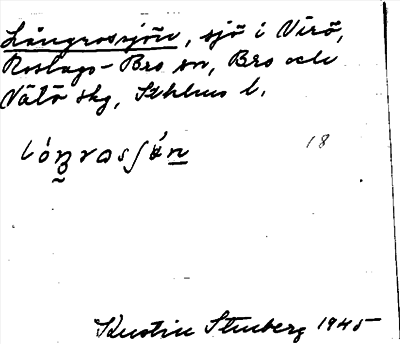 Långrossjön, sjö i Virö,
Roslags-Bro sn, Bro och
Vätö skg, Sthlms l.
18
Kerstin Stenberg 1945